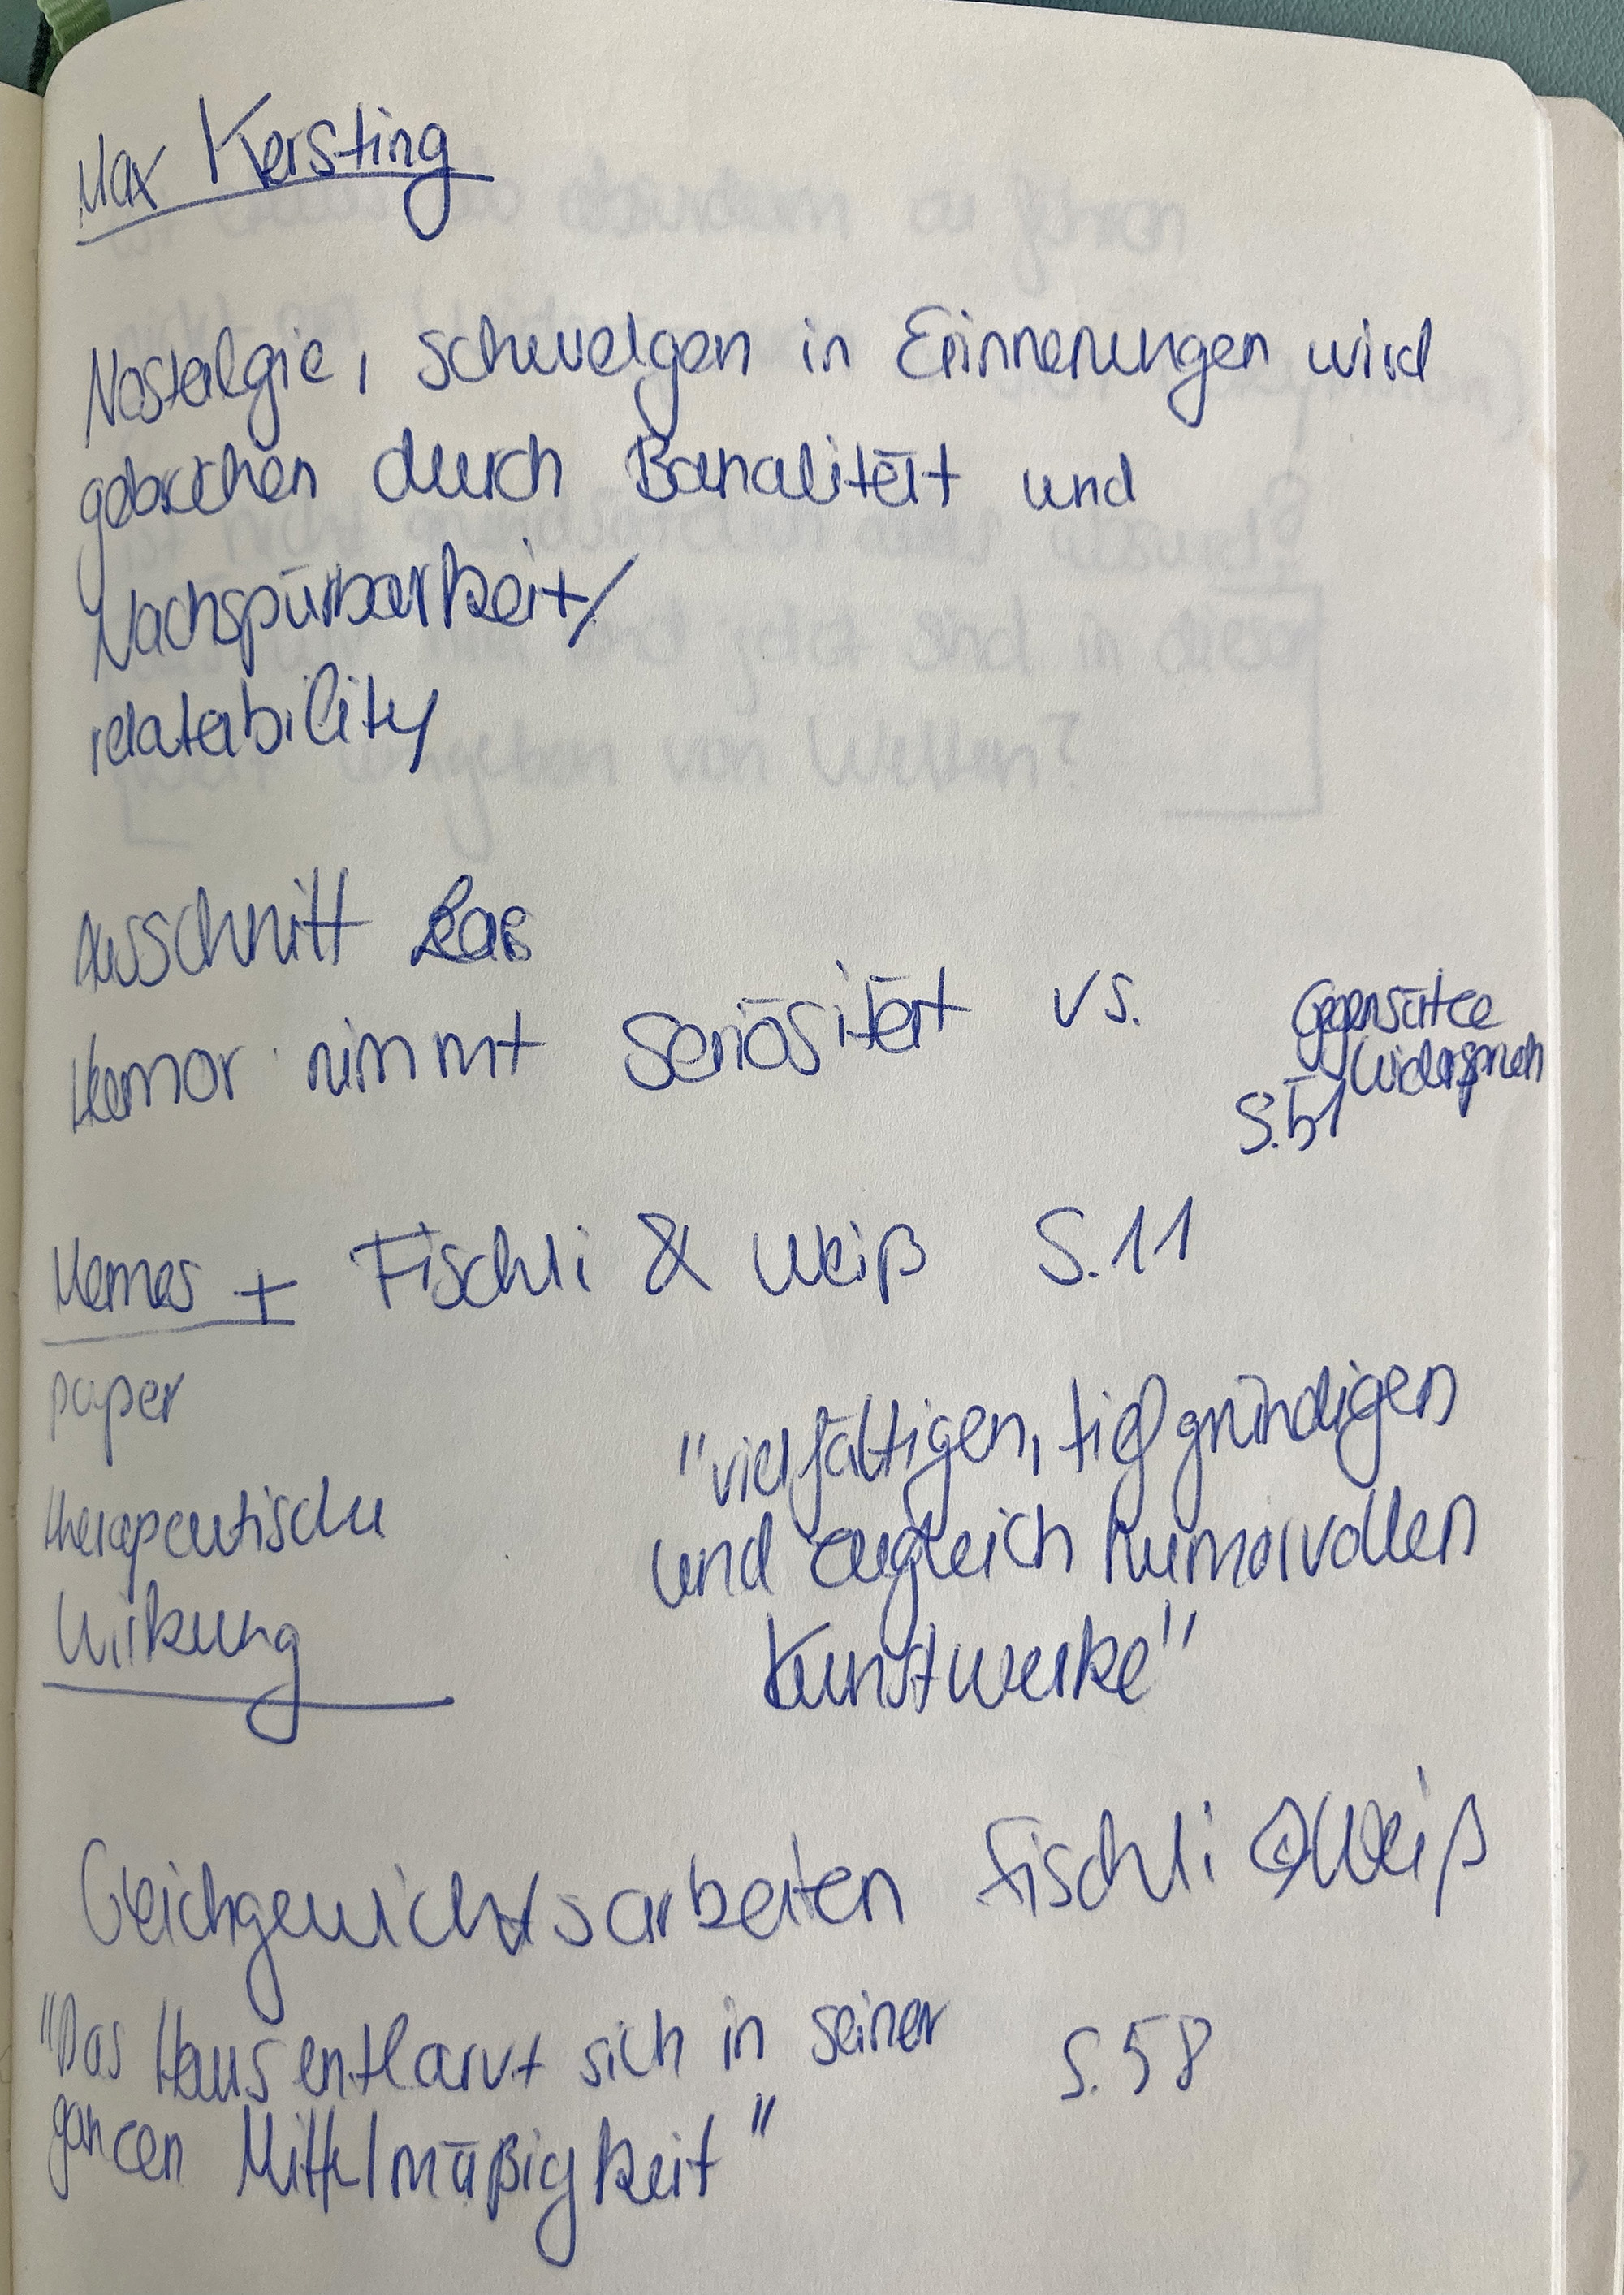 Max Kersting
Nostalgie, schwelgen in Erinnerungen wird
gebrochen durch Banalität und
Nachspürbarkeit/
relatability
Ausschnitt
Humor nimmt Seriösität vs.
Gegensätze
Widerspruch
S.51
Memes + Fischli & Weiß S.11
paper
therapeutische
Wirkung
"vielfältigen, tiefgründigen
und zugleich humorvollen
Kunstwerke"
Gleichgewichtsarbeiten Fischli & Weiß
"Das Haus entlarvt sich in seiner
ganzen Mittelmäßigkeit" S.58